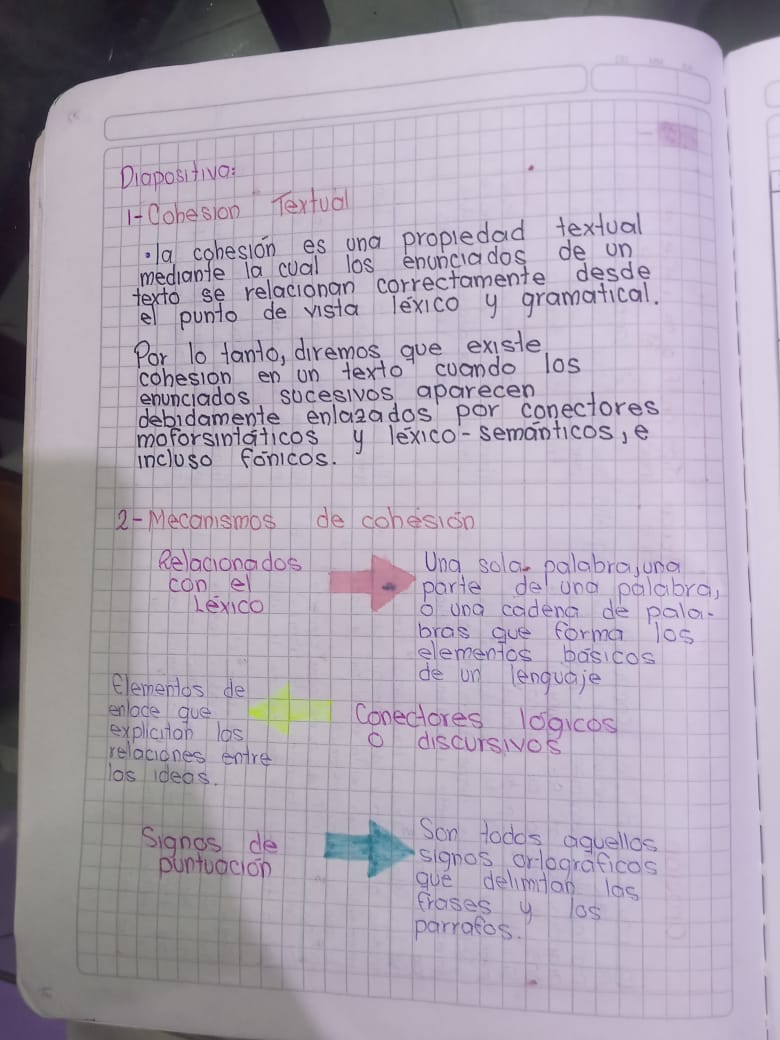 Diapositiva:
1- Cohesion Textual
• la cohesión es una propiedad textual
mediante la cual los enunciados de un
texto se relacionan correctamente desde
el punto de vista léxico y gramatical.
Por lo tanto, diremos que existe
cohesion en un texto cuando los
enunciados sucesivos aparecen
debidamente enlazados por conectores
moforsintáticos y léxico-semánticos, e
incluso fónicos.
2- Mecanismos de cohesión
Relacionados
con el
Léxico
Una sola palabra, una
parte de una palabra,
o una cadena de pala-
bras que forma los
elementos básicos
de un lenguaje
Elementos de
enlace que
explicitan las
relaciones entre
las ideas.
Conectores lógicos
o discursivos
Signos de
puntuación
Son todos aquellos
signos ortográficos
que delimitan las
frases y los
parrafos.